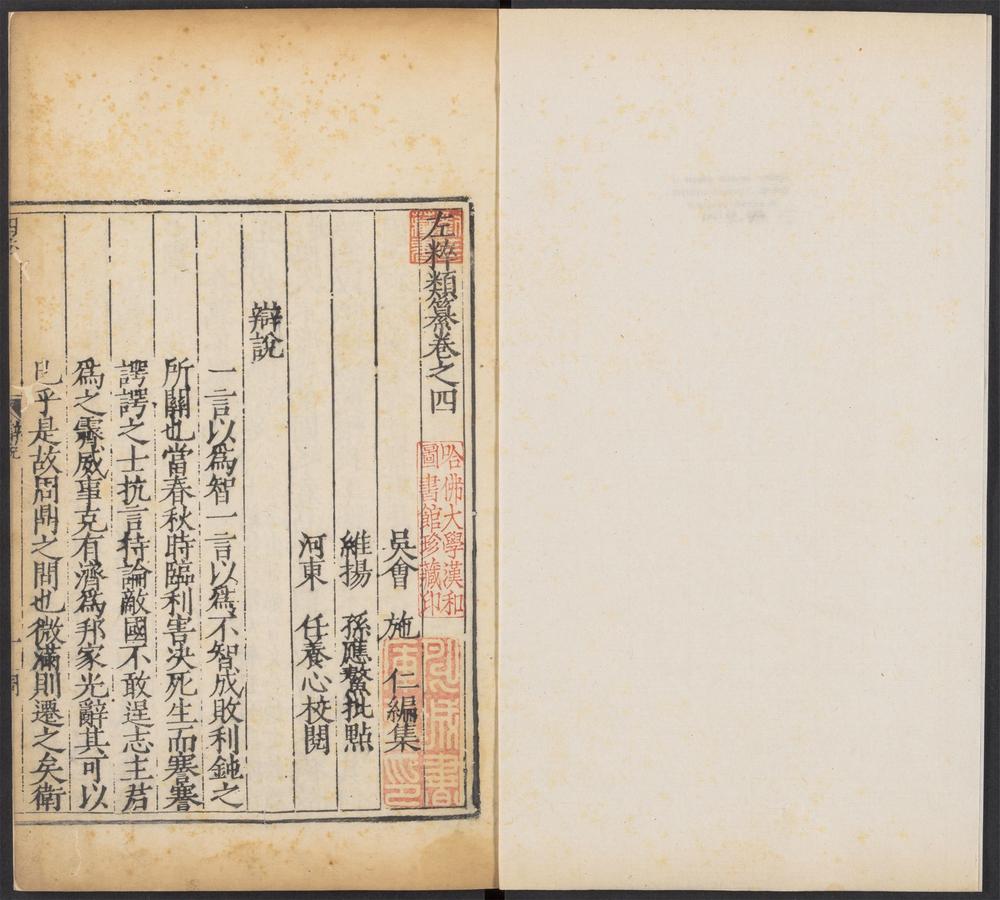 左粹類纂卷之四
哈佛大學漢和
圖書館珍藏印
吳會 施 仁編集
維揚 孫應鰲批點
河東 任養心校閱
辯說
一言以爲智一言以爲不智成敗利鈍之
所關也當春秋時臨利害决死生而謇謇
諤諤之士抗言持論敵國不敢逞志主君
爲之霽威事克有濟爲邦家光辭其可以
已乎是故周鼎之問也微滿則遷之矣衛